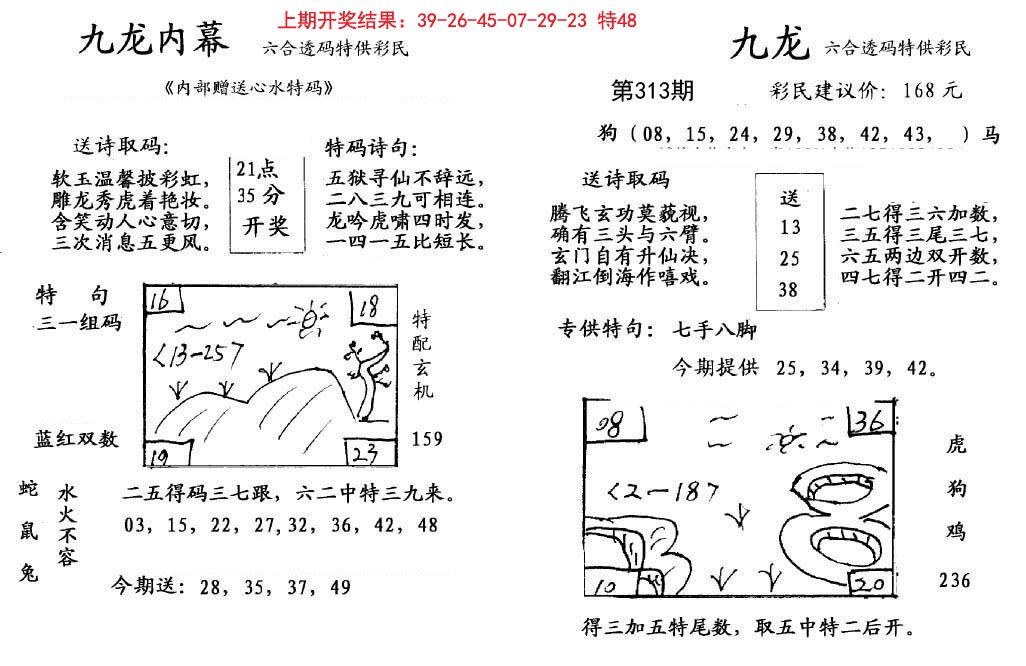 上期开奖结果：39-26-45-07-29-23 特48
九龙内幕 六合透码特供彩民
《内部赠送心水特码》
送诗取码：
软玉温馨披彩虹，
雕龙秀虎着艳妆。
含笑动人心意切，
三次消息五更风。
21点
35分
开奖
特码诗句：
五狱寻仙不辞远，
二八三九可相连。
龙吟虎啸四时发，
一四一五比短长。
特 句
三一组码
蓝红双数
16
18
<13-25>
19
23
特配玄机
159
蛇鼠兔
水火不容
二五得码三七跟，六二中特三九来。
03，15，22，27，32，36，42，48
今期送：28，35，37，49
九龙 六合透码特供彩民
第313期 彩民建议价：168元
狗（08，15，24，29，38，42，43， ）马
送诗取码
腾飞玄功莫藐视，
确有三头与六臂。
玄门自有升仙决，
翻江倒海作嘻戏。
送
13
25
38
二七得三六加数，
三五得三尾三七，
六五两边双开数，
四七得二开四二。
专供特句：七手八脚
今期提供 25，34，39，42。
08
36
<2-18>
10
20
虎
狗
鸡
236
得三加五特尾数，取五中特二后开。